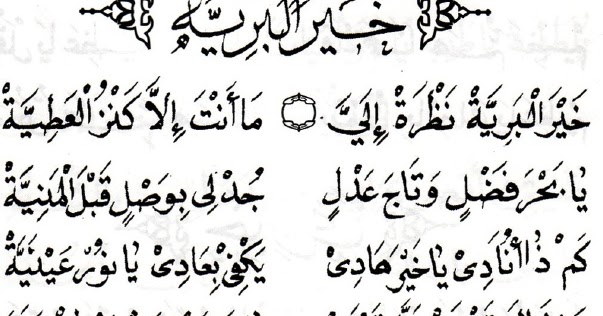 خَيْرَ الْبَرِيَّةْ
خَيْرَ الْبَرِيَّةْ نَظْرَةْ إِلَيَّ ۞ مَا أَنْتَ إِلاَّ كَنْزُ الْعَطِيَّةْ
يَا بَحْرَ فَضْلٍ وَتَاجَ عَدْلٍ جُدْلِى بِوَصْلٍ قَبْلَ الْمَنِيَّةْ
كَمْ ذَا أُنَادِىْ يَاخَيْرَ هَادِىْ يَكْفِىْ بِعَادِىْ يَا نُوْرَ عَيْنَيَّةْ